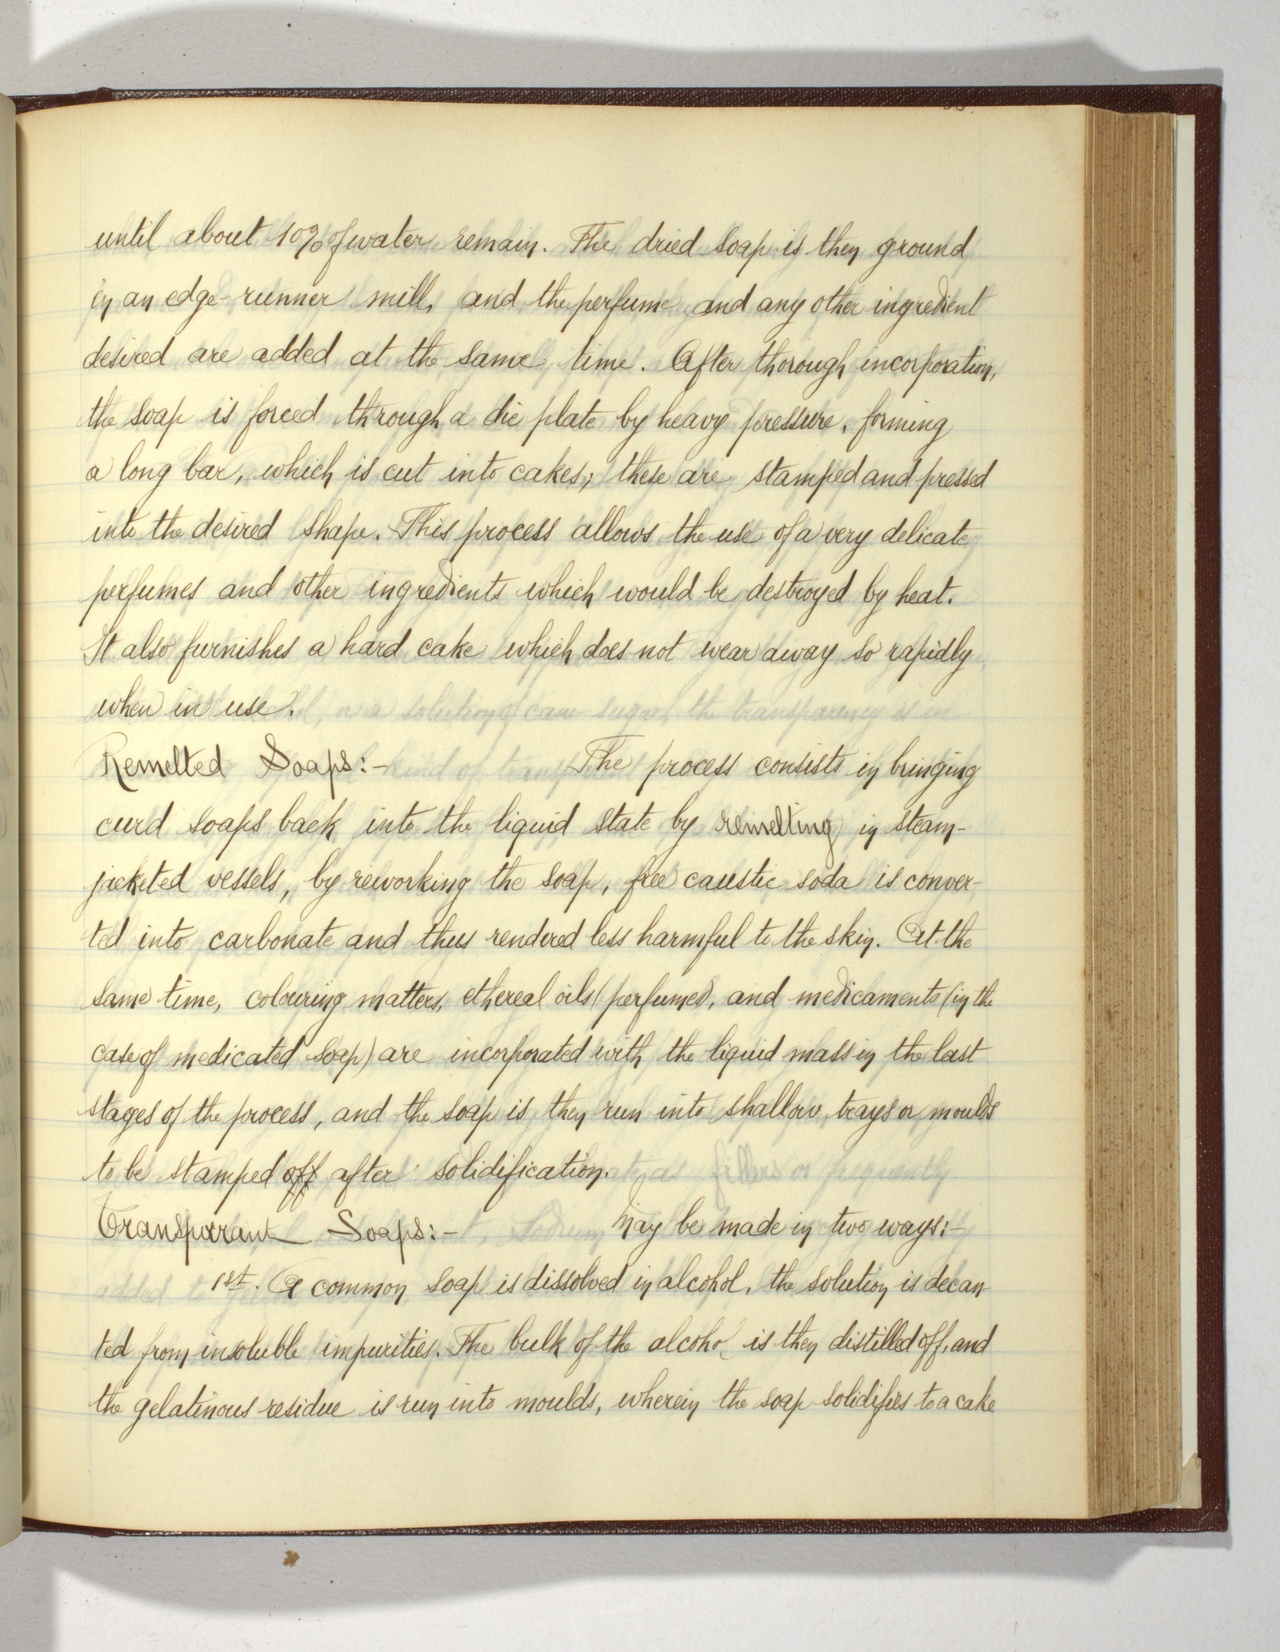 until about 10% of water remain. The dried soap is then ground
in an edge-runner mill, and the perfume and any other ingredient
desired are added at the same time. After thorough incorporation,
the soap is forced through a die plate by heavy pressure, forming
a long bar, which is cut into cakes; these are stamped and pressed
into the desired shape. This process allows the use of a very delicate
perfumes and other ingredients which would be destroyed by heat.
It also furnishes a hard cake which does not wear away so rapidly
when in use.
Remelted Soaps:- The process consists in bringing
curd soaps back into the liquid state by remelting in steam-
jacketed vessels, by reworking the soap, free caustic soda is conver-
ted into carbonate and thus rendered less harmful to the skin. At the
same time, colouring matters, ethereal oils (perfumes), and medicaments (in the
case of medicated soap) are incorporated with the liquid mass in the last
stages of the process, and the soap is then run into shallow trays or moulds
to be stamped off after solidification.
Transparant Soaps:- May be made in two ways:-
1st. A common soap is dissolved in alcohol, the solution is decan
ted from insoluble impurities. The bulk of the alcohol is then distilled off, and
the gelatinous residue is run into moulds, wherein the soap solidifies to a cake